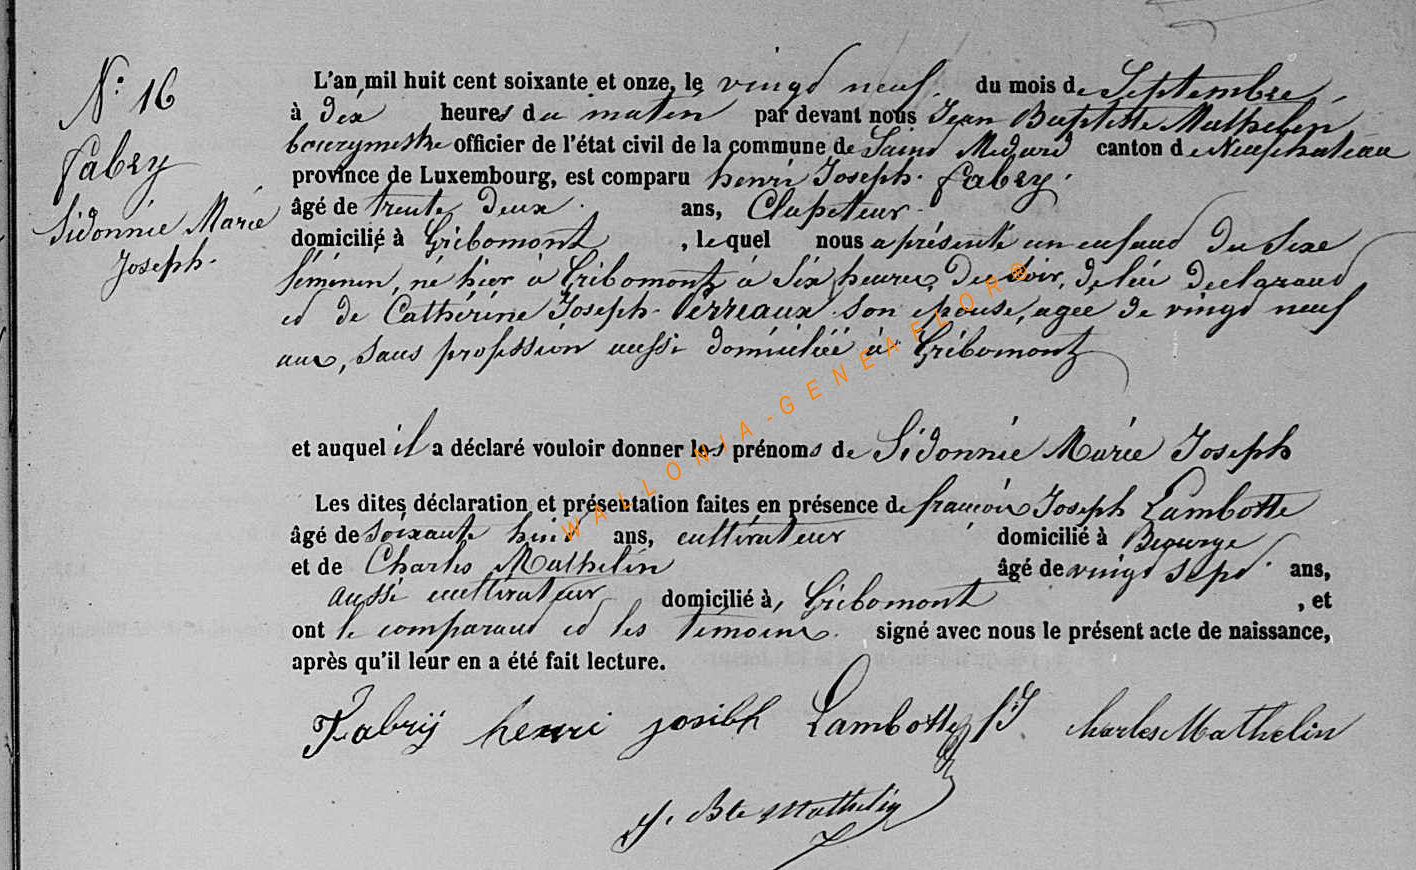 N° 16
Fabry
Sidonnie Marie
Joseph.
L'an mil huit cent soixante et onze, le vingt neuf. du mois de Septembre,
à dix heures du matin par devant nous Jean Baptiste Mathelin
bourgmestre officier de l'état civil de la commune de Saint Médard canton de Neufchateau
province de Luxembourg, est comparu henri Joseph. Fabry.
âgé de trente deux. ans, Clapeteur
domicilié à Gribomont, lequel nous a présenté un enfant du Sexe
féminin, né hier à Gribomont à Six heures Du Soir, de lui déclarant
et de Cathérine Joseph Perreaux son épouse, agée de vingt neuf
ans, sans profession aussi domiciliée à Gribomont
et auquel il a déclaré vouloir donner les prénoms de Sidonnie Marie Joseph
Les dites déclaration et présentation faites en présence de françois Joseph Lambotte
âgé de soixante huit ans, cultivateur domicilié à
et de Charles Mathelin âgé de vingt sept. ans,
aussi cultivateur domicilié à, Gribomont, et
ont le comparant et les témoins. signé avec nous le présent acte de naissance,
après qu'il leur en a été fait lecture.
Fabrÿ henri josibh Lambotte fJ charles Mathelin
J. Bte Mathelin
WALLONIA-GENEAFLOR®